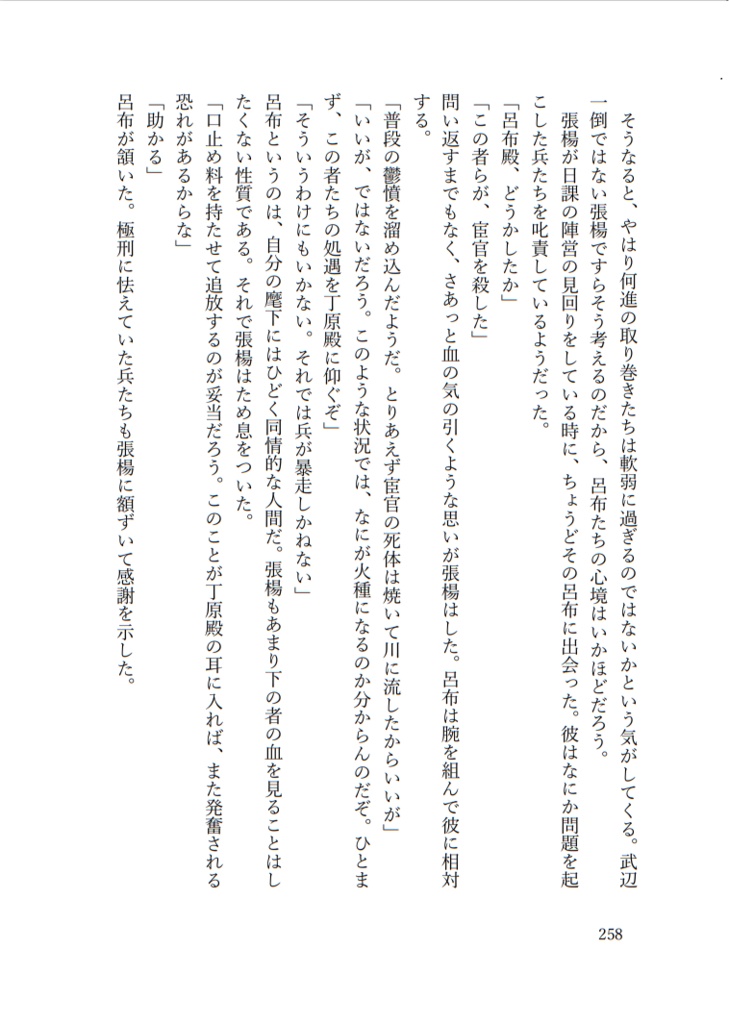 そうなると、やはり何進の取り巻きたちは軟弱に過ぎるのではないかという気がしてくる。武辺
一倒ではない張楊ですらそう考えるのだから、呂布たちの心境はいかほどだろう。
　張楊が日課の陣営の見回りをしている時に、ちょうどその呂布に出会った。彼はなにか問題を起
こした兵たちを叱責しているようだった。
「呂布殿、どうかしたか」
「この者らが、宦官を殺した」
問い返すまでもなく、さあっと血の気の引くような思いが張楊はした。呂布は腕を組んで彼に相対
する。
「普段の鬱憤を溜め込んだようだ。とりあえず宦官の死体は焼いて川に流したからいいが」
「いいが、ではないだろう。このような状況では、なにが火種になるのか分からんのだぞ。ひとま
ず、この者たちの処遇を丁原殿に仰ぐぞ」
「そういうわけにもいかない。それでは兵が暴走しかねない」
呂布というのは、自分の麾下にはひどく同情的な人間だ。張楊もあまり下の者の血を見ることはし
たくない性質である。それで張楊はため息をついた。
「口止め料を持たせて追放するのが妥当だろう。このことが丁原殿の耳に入れば、また発奮される
恐れがあるからな」
「助かる」
呂布が頷いた。極刑に怯えていた兵たちも張楊に額ずいて感謝を示した。
258